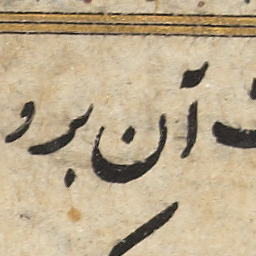 آن برو